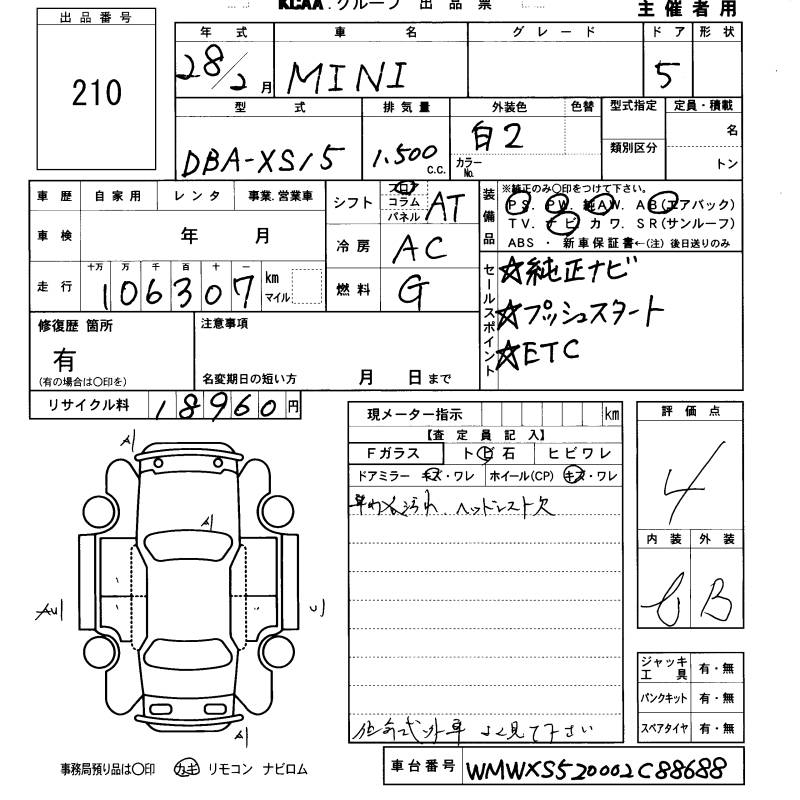 KCAA.グループ 出品票
主催者用
出品番号
210
年式 車名 グレード ドア 形状
28/2月 MINI 5
型式 排気量 外装色 色替 型式指定 定員・積載
DBA-XS15 1.500 c.c. 白2 カラーNo. 類別区分 名
トン
車歴 自家用 レンタ 事業.営業車
車検 年 月
走行 十万 万 千 百 十 一
106307 km マイル
シフト フロア コラム パネル AT
冷房 AC
燃料 G
装備品
※純正のみ○印をつけて下さい。
PS. PW. 純AW. AB(エアバック)
TV. ナビ カワ. SR(サンルーフ)
ABS ・ 新車保証書←(注) 後日送りのみ
セールスポイント
☆純正ナビ
☆プッシュスタート
☆ETC
修復歴 箇所
有
(有の場合は○印を)
注意事項
名変期日の短い方 月 日まで
リサイクル料 18960円
現メーター指示 km
【査定員記入】
Fガラス トビ石 ヒビワレ
ドアミラー キズ・ワレ ホイール(CP) キズ・ワレ
ヘッドレスト欠
よく見て下さい
評価点
4
内装 外装
B
A
A
A
ジャッキ工具 有・無
パンクキット 有・無
スペアタイヤ 有・無
事務局預り品は○印 カギ リモコン ナビロム
車台番号 WMWXS520002C88688